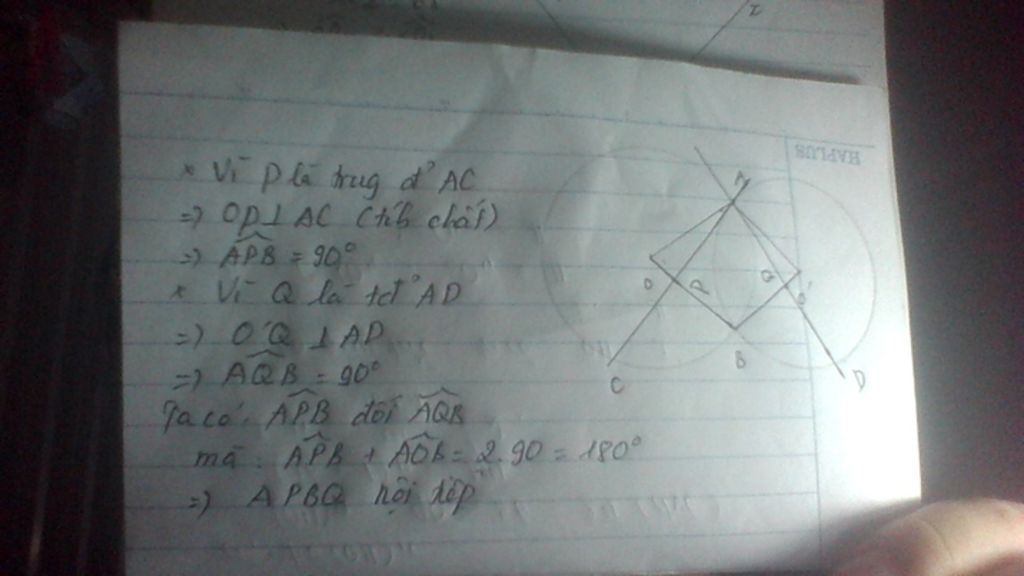 * Vì P là trug đ' AC
=> OP ⊥ AC (tíh chất)
=> APB = 90°
* Vì Q là tđ' AD
=> O'Q ⊥ AD
=> AQB = 90°
Ta có: APB đối AQB
mà: APB + AQB = 2.90 = 180°
=> APBQ nội tiếp
HAPLUS
A
O
P
Q
O'
B
C
D
I